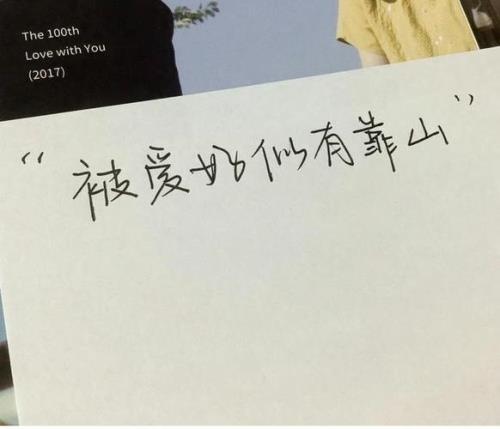 The 100th
Love with You
(2017)
“被爱好似有靠山”